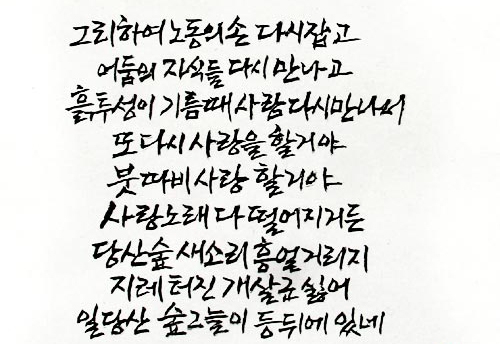 그리하여 노동의 손 다시 잡고
어둠의 자식들 다시 만나고
흙투성이 기름때 사람 다시 만나서
또 다시 사랑을 할거야
붓따비 사랑 할거야
사랑노래 다 떨어지거든
당산숲 새소리 흥얼거리지
지레 터진 개살군 싫어
일당산 숲그늘이 등뒤에 있네